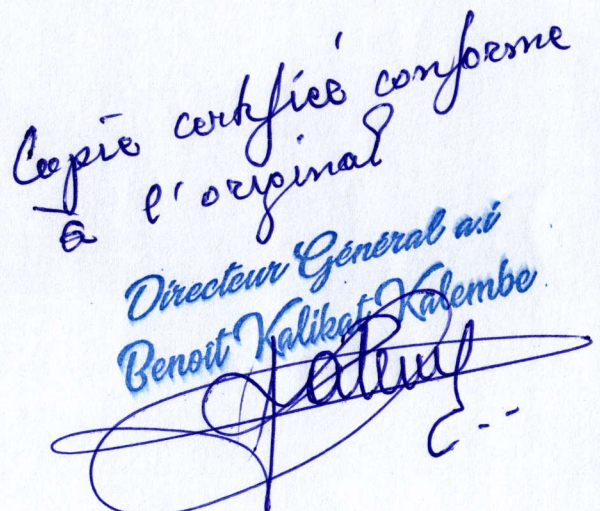 Copie certifiée conforme
à l'original
Directeur Général a.i
Benoît Kalikat Kalembe